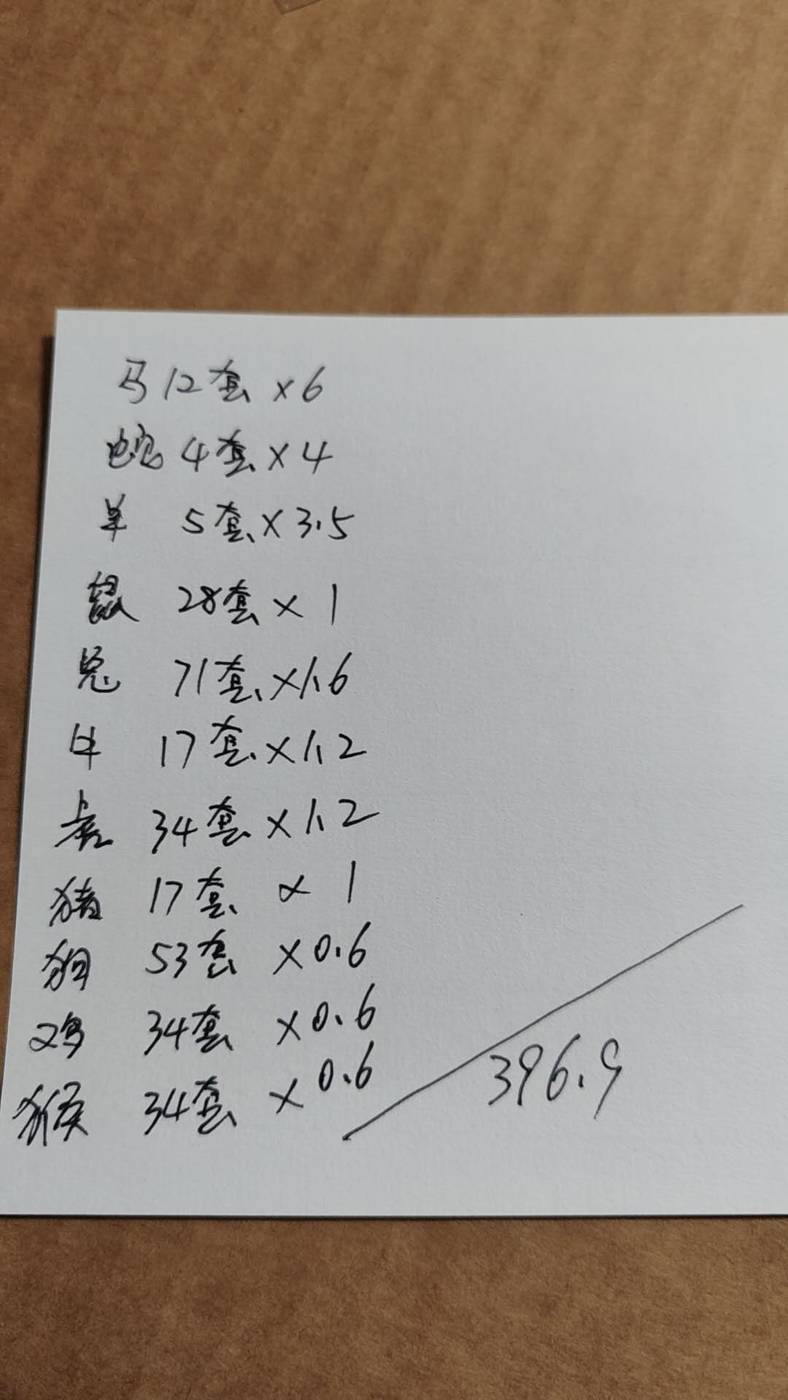 马12套×6
蛇 4套×4
羊 5套×3.5
鼠 28套×1
兔 71套×1.6
牛 17套×1.2
虎 34套×1.2
猪 17套×1
狗 53套×0.6
鸡 34套×0.6
猴 34套×0.6
396.9